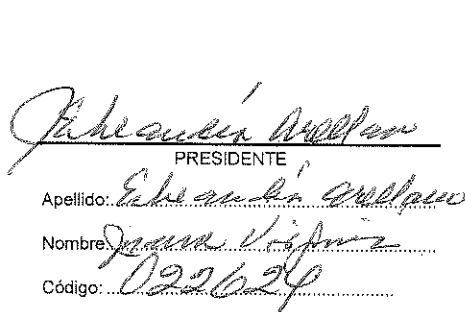 Echeandía Arellano
PRESIDENTE
Apellido: Echeandía Arellano
Nombre: Juana
Código: 022624